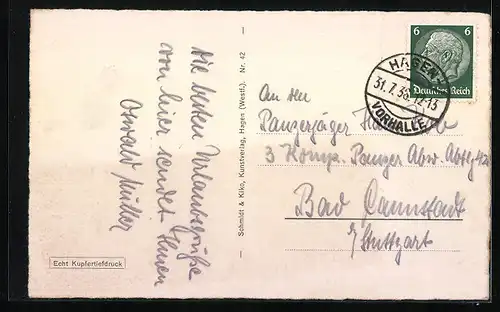 Die besten Urlaubsgrüße
von hier sendet Ihnen
Oswald Müller
Echt Kupfertiefdruck
Schmidt & Kiko, Kunstverlag, Hagen (Westf.). Nr. 42
6 6
Deutsches Reich
HAGEN
31.7.38.12-13
VORHALLE
An den
Panzerjäger
3 Komp. Panzer Abw. Abtlg
Bad Cannstadt
b/Stuttgart